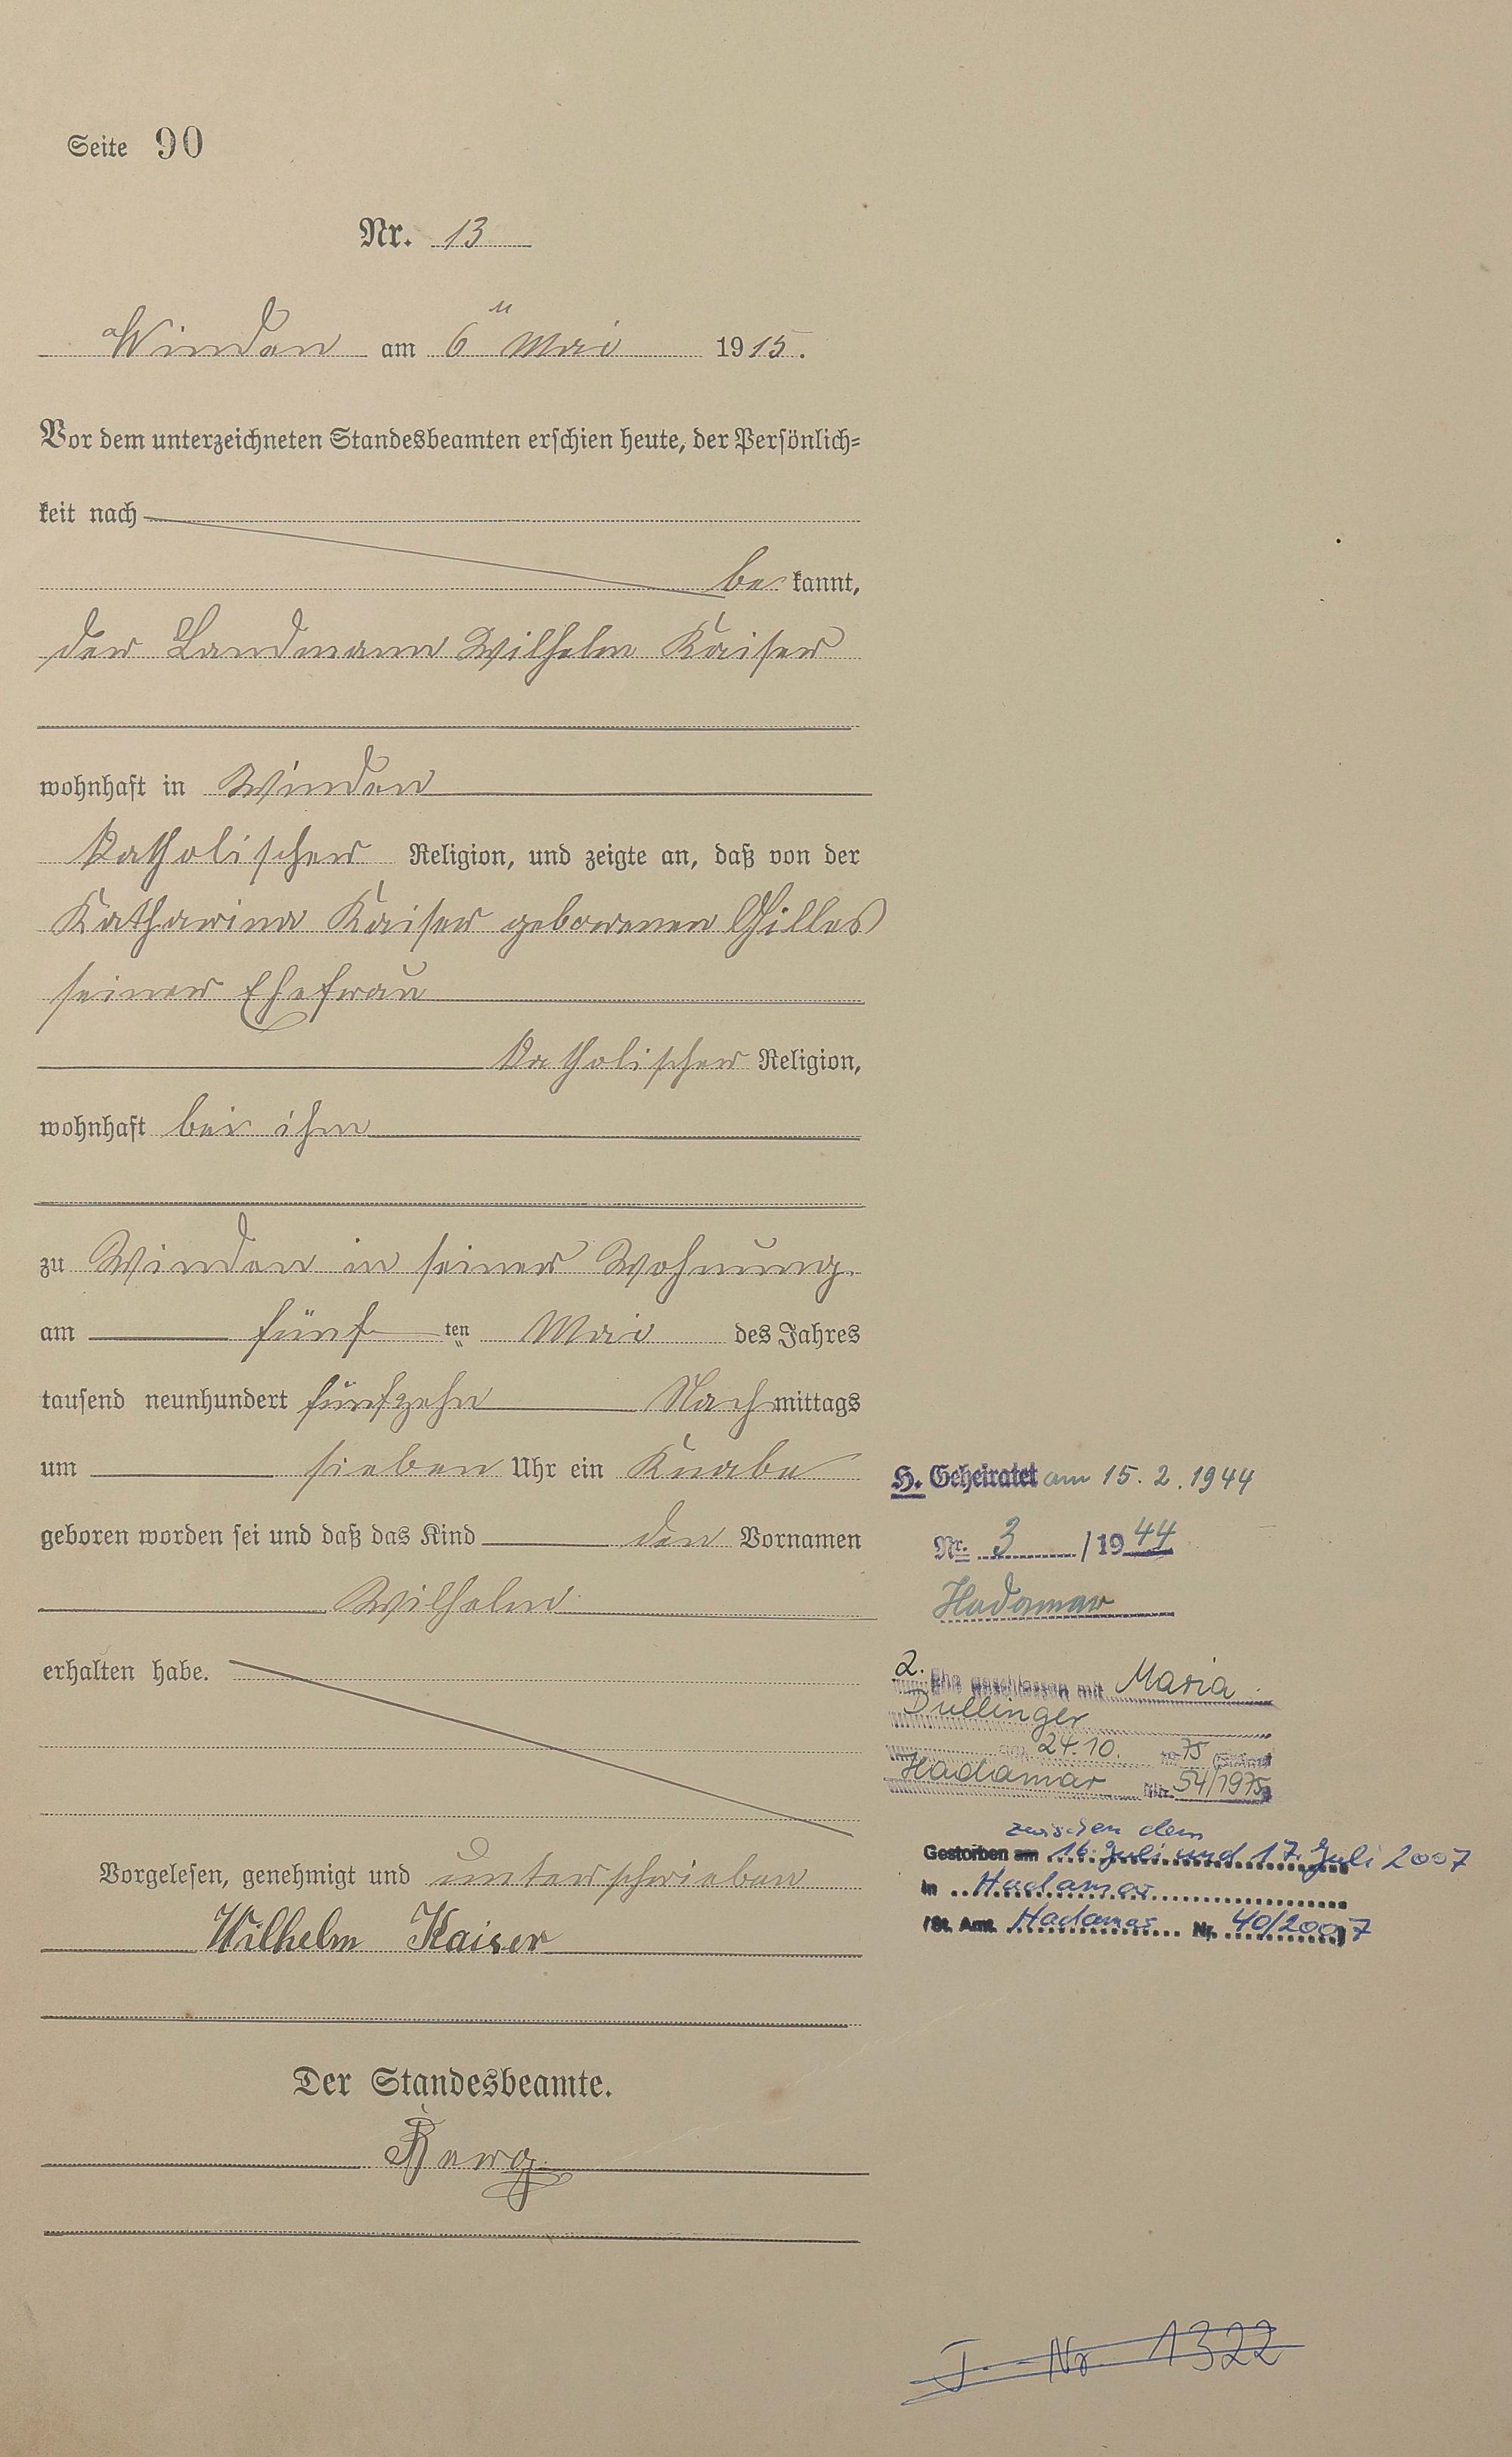 Seite 90
Nr. 13
Winden am 6ten Mai 1915.
Vor dem unterzeichneten Standesbeamten erschien heute, der Persönlich=
keit nach
be kannt,
der Landmann Wilhelm Kaiser
wohnhaft in Winden
katholischer Religion, und zeigte an, daß von der
Katharina Kaiser geborenen Gilles
seiner Ehefrau
katholischer Religion,
wohnhaft bei ihm
zu Winden in seiner Wohnung
am fünf ten Mai des Jahres
tausend neunhundert fünfzehn Nach mittags
um sieben Uhr ein Knabe
geboren worden sei und daß das Kind den Vornamen
Wilhelm
erhalten habe.
Vorgelesen, genehmigt und unterschrieben
Wilhelm Kaiser
Der Standesbeamte.
Berg
H. Geheiratet am 15.2.1944
Nr. 3 /1944
Hadamar
2. Ehe geschlossen mit Maria
Dullinger
am 24.10. 1975
Hadamar Nr. 54/1975
zwischen dem
Gestorben am 16. Juli und 17. Juli 2007
in Hadamar
/St. Amt. Hadamar Nr. 40/2007
J.-Nr. 1322